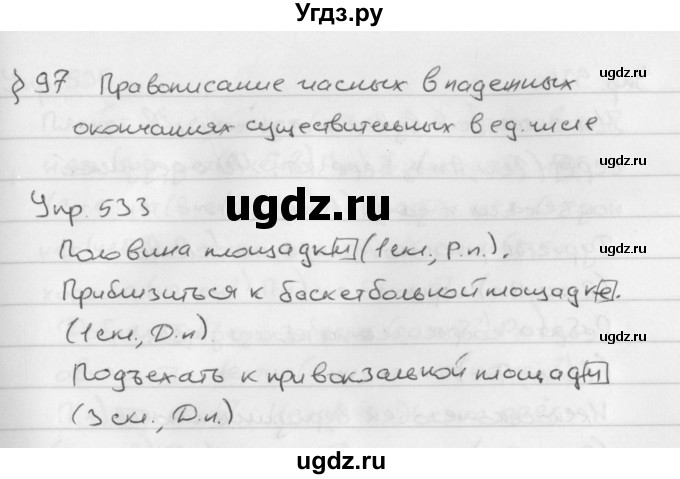 Угдз.ру
ugdz.ru
§ 97 Правописание гласных в падежных
ugdz.ru
окончаниях существительных в ед. числе
ugdz.ru
Упр. 533
ugdz.ru
Половина площадки (1 скл., Р.п.).
ugdz.ru
Приблизиться к баскетбольной площадке.
(1 скл., Д.п)
ugdz.ru
Подъехать к привокзальной площади
ugdz.ru
(3 скл., Д.п.)
ugdz.ru
ugdz.ru